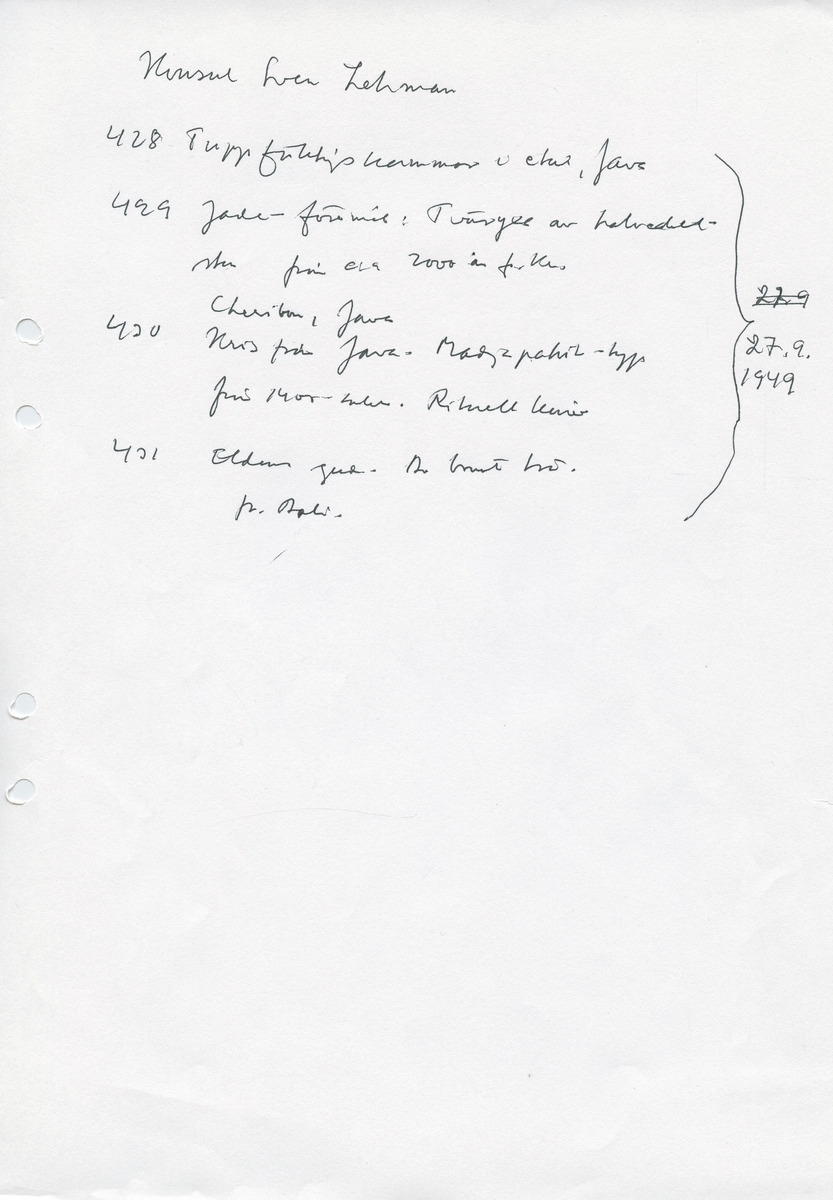 Konsul Sven Lehman
428 Tuppfäktningskammar i etui, Java
429 Jade-föremål: Tvåryxa av halvädel-
sten från ca 2000 år f. Kr.
Cheribon, Java
430 Kris från Java. Madjapahit-typ
från 1400-talet. Rituell
431 Eldens gud. Av brunt trä.
fr. Bali.
22.9
27.9.
1949